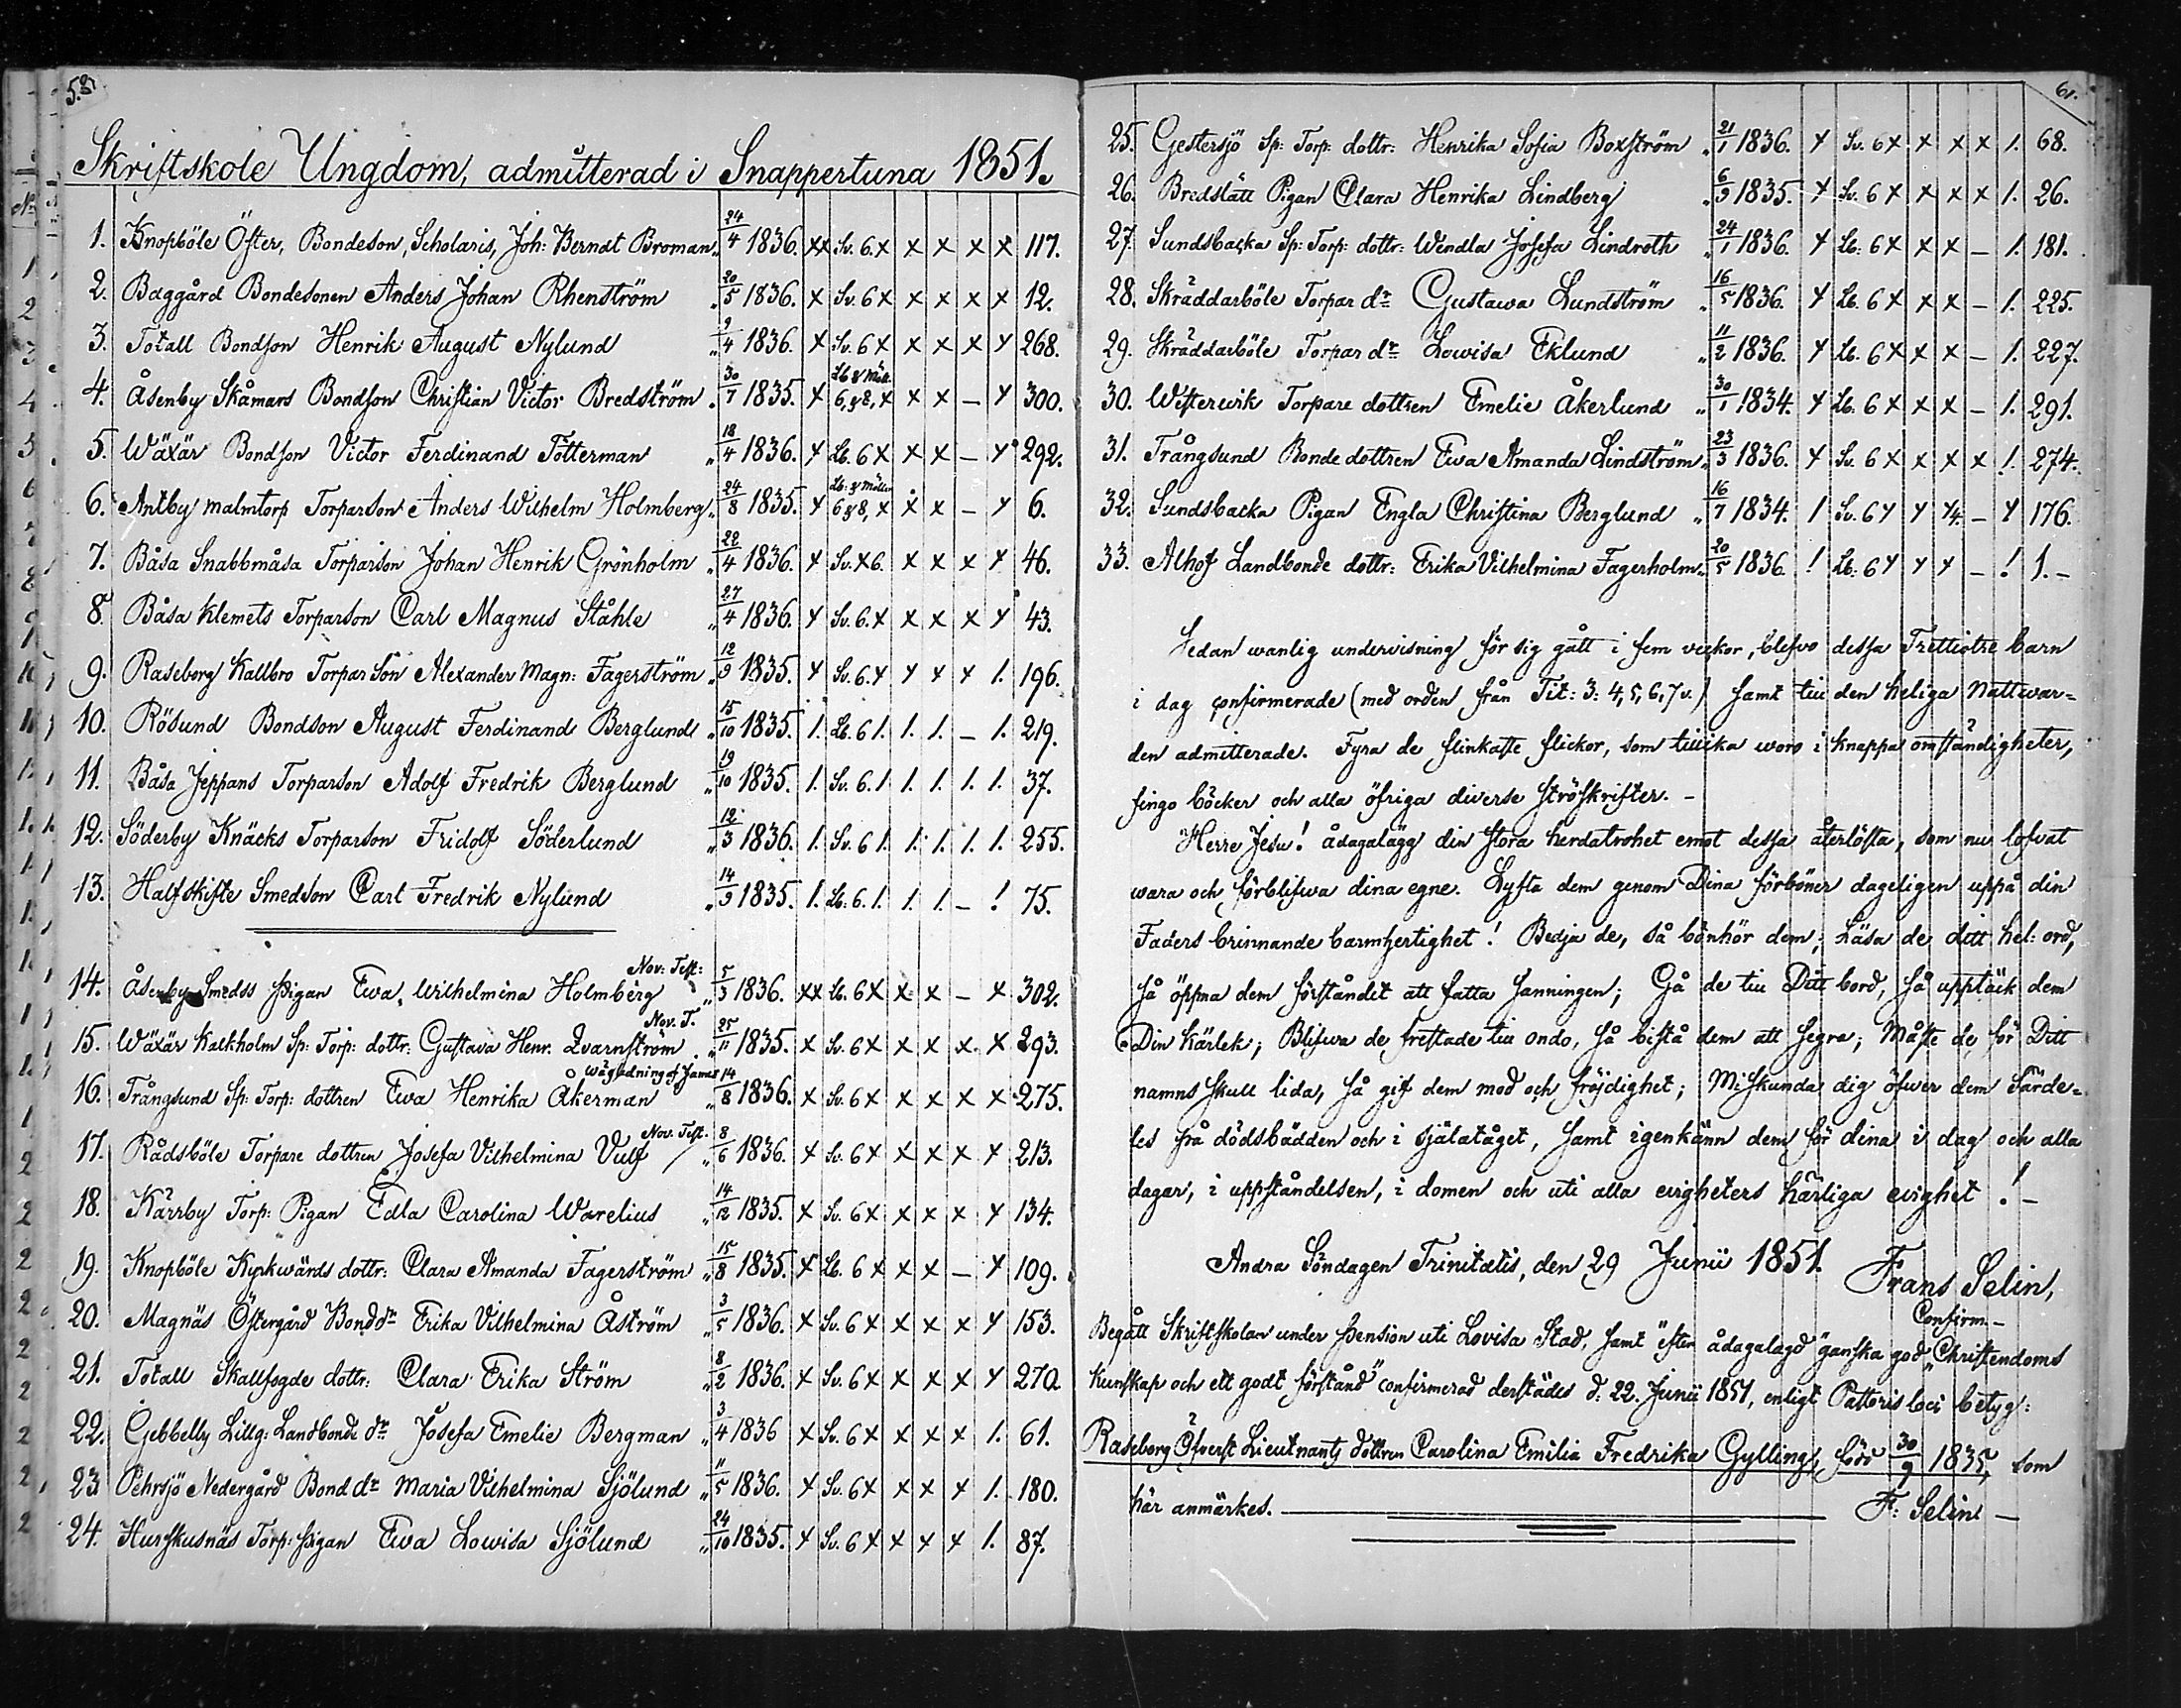 58.
Skriftskole Ungdom, admitterad i Snappertuna 1851.
1. Knopböle Öfter, Bondeson, Scholaris, Joh: Berndt Broman „ 24/4 1836. xx Sv. 6. x x x x x 117.
2. Baggård Bondesonen Anders Johan Rhenström „ 20/5 1836. x Sv. 6 x x x x x 12.
3. Totall Bondson Henrik August Nylund „ 9/4 1836. x Sv. 6 x x x x x 268.
4. Åsenby Skåmars Bondson Christian Victor Bredström „ 30/7 1835. x Lb & Möll. 6, & 8, x x x – x 300.
5. Wäxär Bondson Victor Ferdinand Tötterman „ 18/4 1836. x Lb. 6 x x x – x 292.
6. Antby malmtorp Torparson Anders Wilhelm Holmberg „ 24/8 1835. x Lb: & Möller 6 & 8, x x x – x 6.
7. Båsa Snabbmåsa Torparson Johan Henrik Grönholm „ 22/4 1836. x Sv. x 6. x x x x 46.
8. Båsa Klemets Torparson Carl Magnus Ståhle „ 27/4 1836. x Sv. 6. x x x x x 43.
9. Raseborg Kallbro Torpar Son Alexander Magn: Fagerström „ 12/9 1835. x Sv. 6. x x x x 1. 196.
10. Rösund Bondson August Ferdinand Berglund „ 15/10 1835. 1. Lb. 6 1. 1. 1. – 1. 219.
11. Båsa Jeppans Torparson Adolf Fredrik Berglund „ 19/10 1835. 1. Sv. 6. 1 1. 1. 1. 1. 37.
12. Söderby Knäcks Torparson Fridolf Söderlund „ 12/3 1836. 1. Sv. 6 1. 1. 1. 1. 1. 255.
13. Halfskifte Smedson Carl Fredrik Nylund „ 14/9 1835. 1. Lb: 6. 1. 1. 1. – ! 75.
Nov: Test:
14. Åsenby Smedss Pigan Ewa Wilhelmina Holmberg „ 5/3 1836. xx Lb. 6 x x x – x 302.
Nov. T.
15. Wäxär Kalkholm Sp: Torp: dottr: Gustava Henr. Qvarnström „ 25/11 1835. x Sv. 6 x x x x x 293.
16. Trångsund Sp: Torp: dottren Ewa Henrika Åkerman „ 14/8 1836. x Sv. 6 x x x x x 275.
Nov. Test.
17. Rådsböle Torpare dottren Josefa Vilhelmina Vulf „ 8/6 1836. x Sv. 6 x x x x x 213.
18. Kärrby Torp: Pigan Edla Carolina Warelius „ 14/12 1835. x Sv. 6 x x x x x 134.
19. Knopböle Kyrkwärds dottr: Clara Amanda Fagerström „ 15/8 1835. x Lb. 6 x x x – x 109.
20. Magnäs Östergård Bond dr Erika Vilhelmina Åström „ 3/5 1836. x Sv. 6 x x x x x 153.
21. Totall Skallfogde dottr: Clara Erika Ström „ 8/2 1836. x Sv. 6 x x x x x 270
22. Gebbelby Lillg: Landbonde dr Josefa Emelie Bergman „ 3/4 1836 x Sv. 6 x x x x 1. 61.
23 Pehrsjö Nedergård Bond dr Maria Vilhelmina Sjölund „ 11/5 1836. x Sv. 6 x x x x 1. 180.
24. Hurskusnäs Torp: Pigan Ewa Lowisa Sjölund „ 24/10 1835. x Sv. 6 x x x x 1. 87.
61.
25. Gestersjö Sp: Torp: dottr: Henrika Sofia Boxström „ 21/1 1836. x Sv. 6 x x x x 1. 68.
26. Bredslätt Pigan Clara Henrika Lindberg „ 6/9 1835. x Sv. 6 x x x x 1. 26.
27. Sundsbacka Sp: Torp: dottr: Wendla Josefa Lindroth „ 24/1 1836. x Lb: 6 x x x – 1. 181.
28. Skräddarböle Torpar dr Gustawa Lundström „ 16/5 1836. x Lb. 6 x x x – 1. 225.
29. Skräddarböle Torpar dr Lowisa Eklund „ 11/2 1836. x Lb. 6 x x x – 1. 227.
30. Westerwik Torpare dottren Emelie Åkerlund „ 30/1 1834. x Lb. 6 x x x – 1. 291.
31. Trångsund Bonde dottren Ewa Amanda Lindström „ 23/3 1836. x Sv. 6 x x x x ! 274.
32. Sundsbacka Pigan Engla Christina Berglund „ 16/7 1834. 1 Sv. 6 x x x – x 176.
33. Alhof Landbonde dottr: Erika Vilhelmina Fagerholm „ 20/5 1836. ! Lb: 6 x x x – ! 1. –
Sedan wanlig undervisning för sig gått i fem veckor, blefvo dessa Trettiotre barn
i dag confirmerade (med orden från Tit: 3: 4, 5, 6, 7 v.) samt till den heliga Nattwar=
den admitterade. Fyra de flinkaste flickor, som tillika woro i knappa omständigheter,
fingo böcker och alla öfriga diverse ströskrifter. –
Herre Jesu! ådagalägg din stora herdatrohet emot dessa återlösta, som nu lofvat
wara och förblifwa dina egne. Lyfta dem genom Dina förböner dageligen uppå din
Faders brinnande barmhertighet! Bedja de, så bönhör dem; Läsa de ditt hel: ord,
så öppna dem förståndet att fatta sanningen; Gå de till Ditt bord, så upptäck dem
Din kärlek; Blifwa de frestade till ondo, så bistå dem att segra; Måste de för Ditt
namns skull lida, så gif dem mod och fröjdighet; Miskunda dig öfwer dem särde=
les på dödsbädden och i själatåget, samt igenkänn dem för dina i dag och alla
dagar, i uppståndelsen, i domen och uti alla evigheters härliga evighet! –
Andra Söndagen Trinitatis, den 29 Junii 1851.
Frans Selin,
Confirm. –
Begått Skriftskolan under Pension uti Lovisa Stad, samt efter ådagalagd "ganska god Christendoms
kunskap och ett godt förstånd" confirmerad derstädes d: 22. Junii 1851, enligt Pastoris loci betyg:
Raseborg Öfverst Lieutnants dottren Carolina Emilia Fredrika Gylling, född 30/9 1835, som
här anmärkes.
F: Selin –